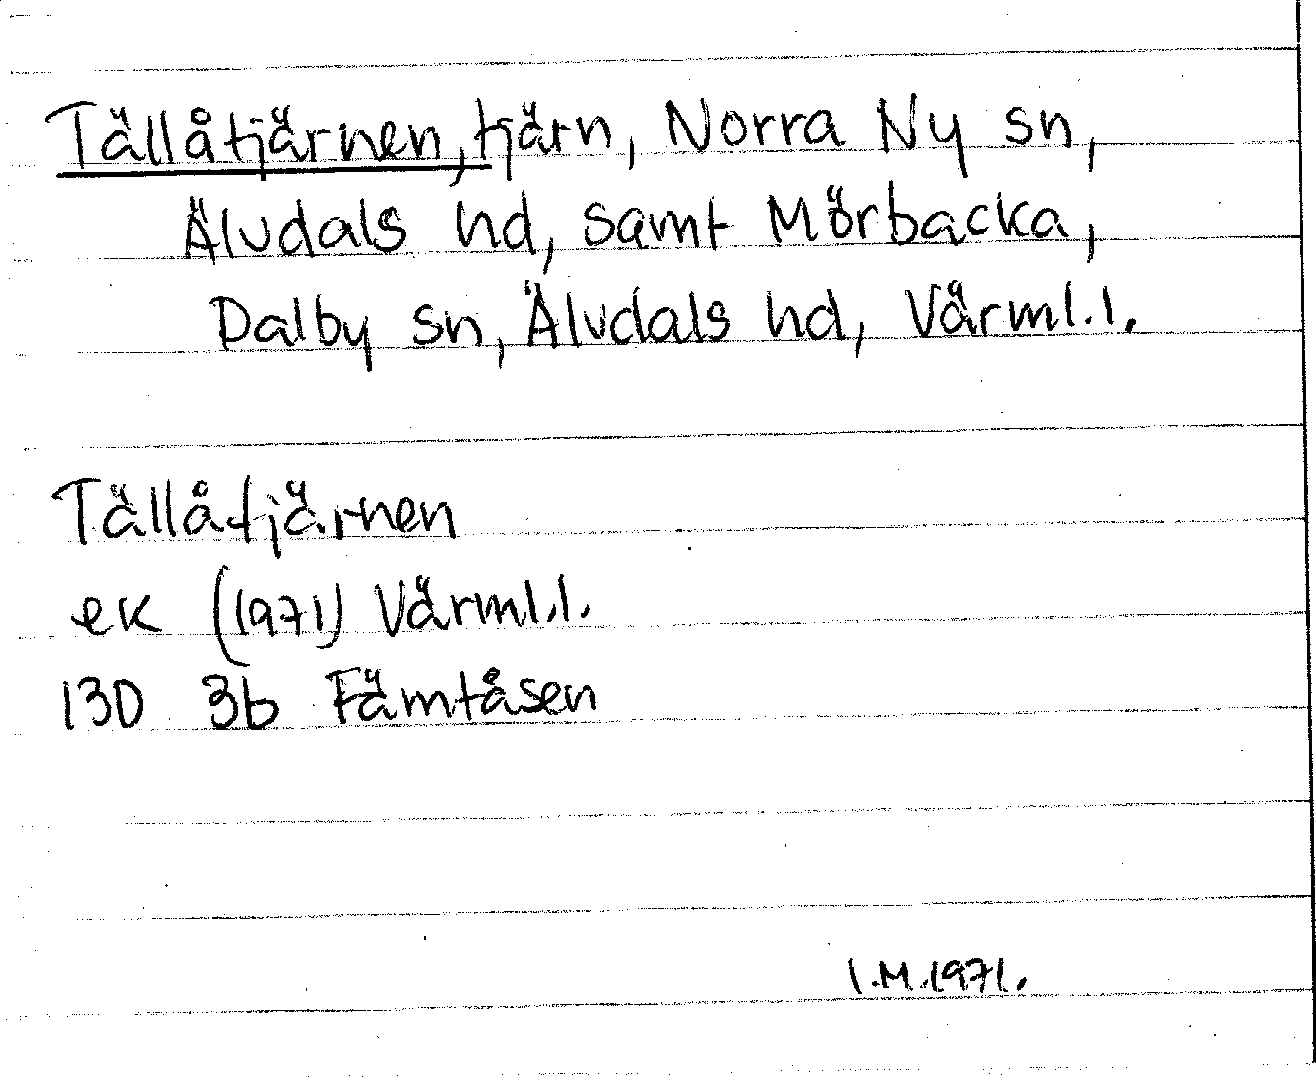 Tällåtjärnen, tjärn, Norra Ny sn,
Älvdals hd, samt Mörbacka,
Dalby sn, Älvdals hd, Värml.l.
Tällåtjärnen
ek (1971) Värml.l.
13D 3b Fämtåsen
I.M.1971.